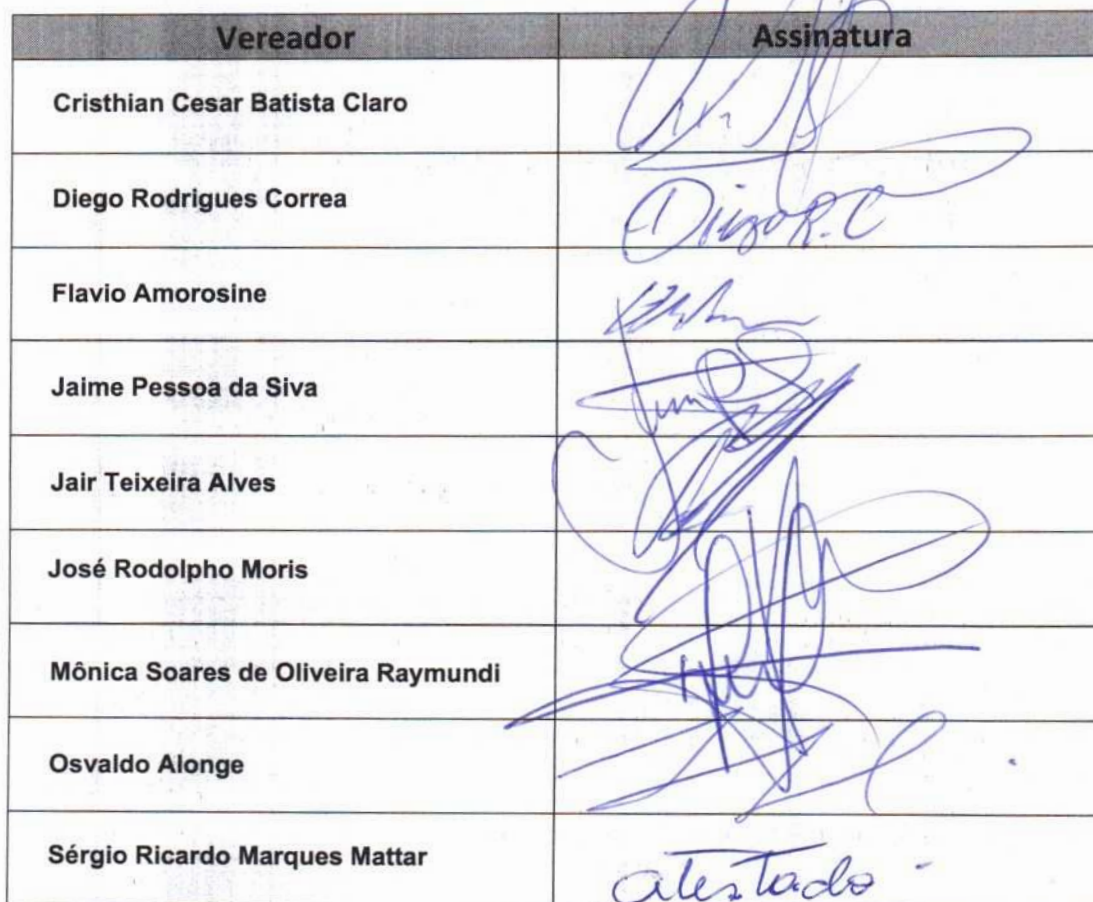 Vereador Assinatura
Cristhian Cesar Batista Claro
Diego Rodrigues Correa Diego R. C
Flavio Amorosine
Jaime Pessoa da Siva
Jair Teixeira Alves
José Rodolpho Moris
Mônica Soares de Oliveira Raymundi
Osvaldo Alonge
Sérgio Ricardo Marques Mattar atestado